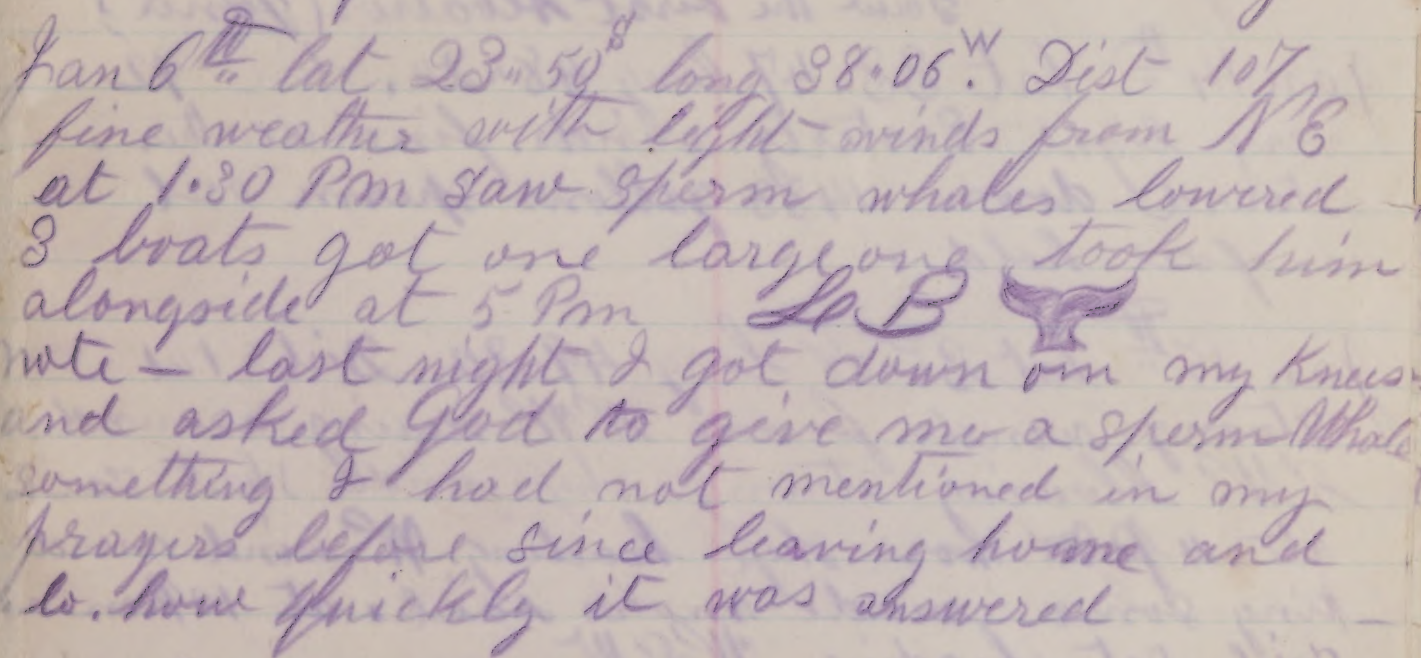 Jan 6th lat 23" 50 S long 38.06 W. Dist 107
fine weather with light winds from NE
at 1.30 Pm saw sperm whales lowered
3 boats got one large one took him
alongside at 5 Pm L B
note — last night I got down on my knees
and asked God to give me a sperm Whale
something I had not mentioned in my
prayers before since leaving home and
lo. how quickly it was answered